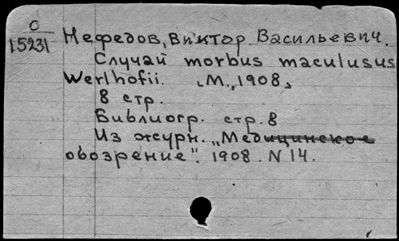 О
15231
Нефедов, Виктор Васильевич.
Случай morbus maculusus
Werlhofii. [М., 1908]
8 стр.
Библиогр. стр. 8
Из журн. „Медицинское
обозрение". 1908. N 14.